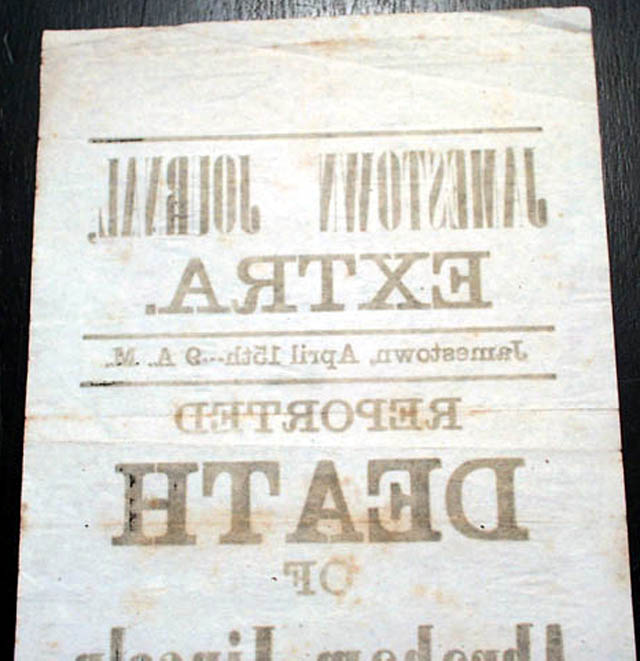 JAMESTOWN JOURNAL,
EXTRA.
Jamestown, April 15th--9 A. M.
REPORTED
DEATH
OF
Abraham Lincoln